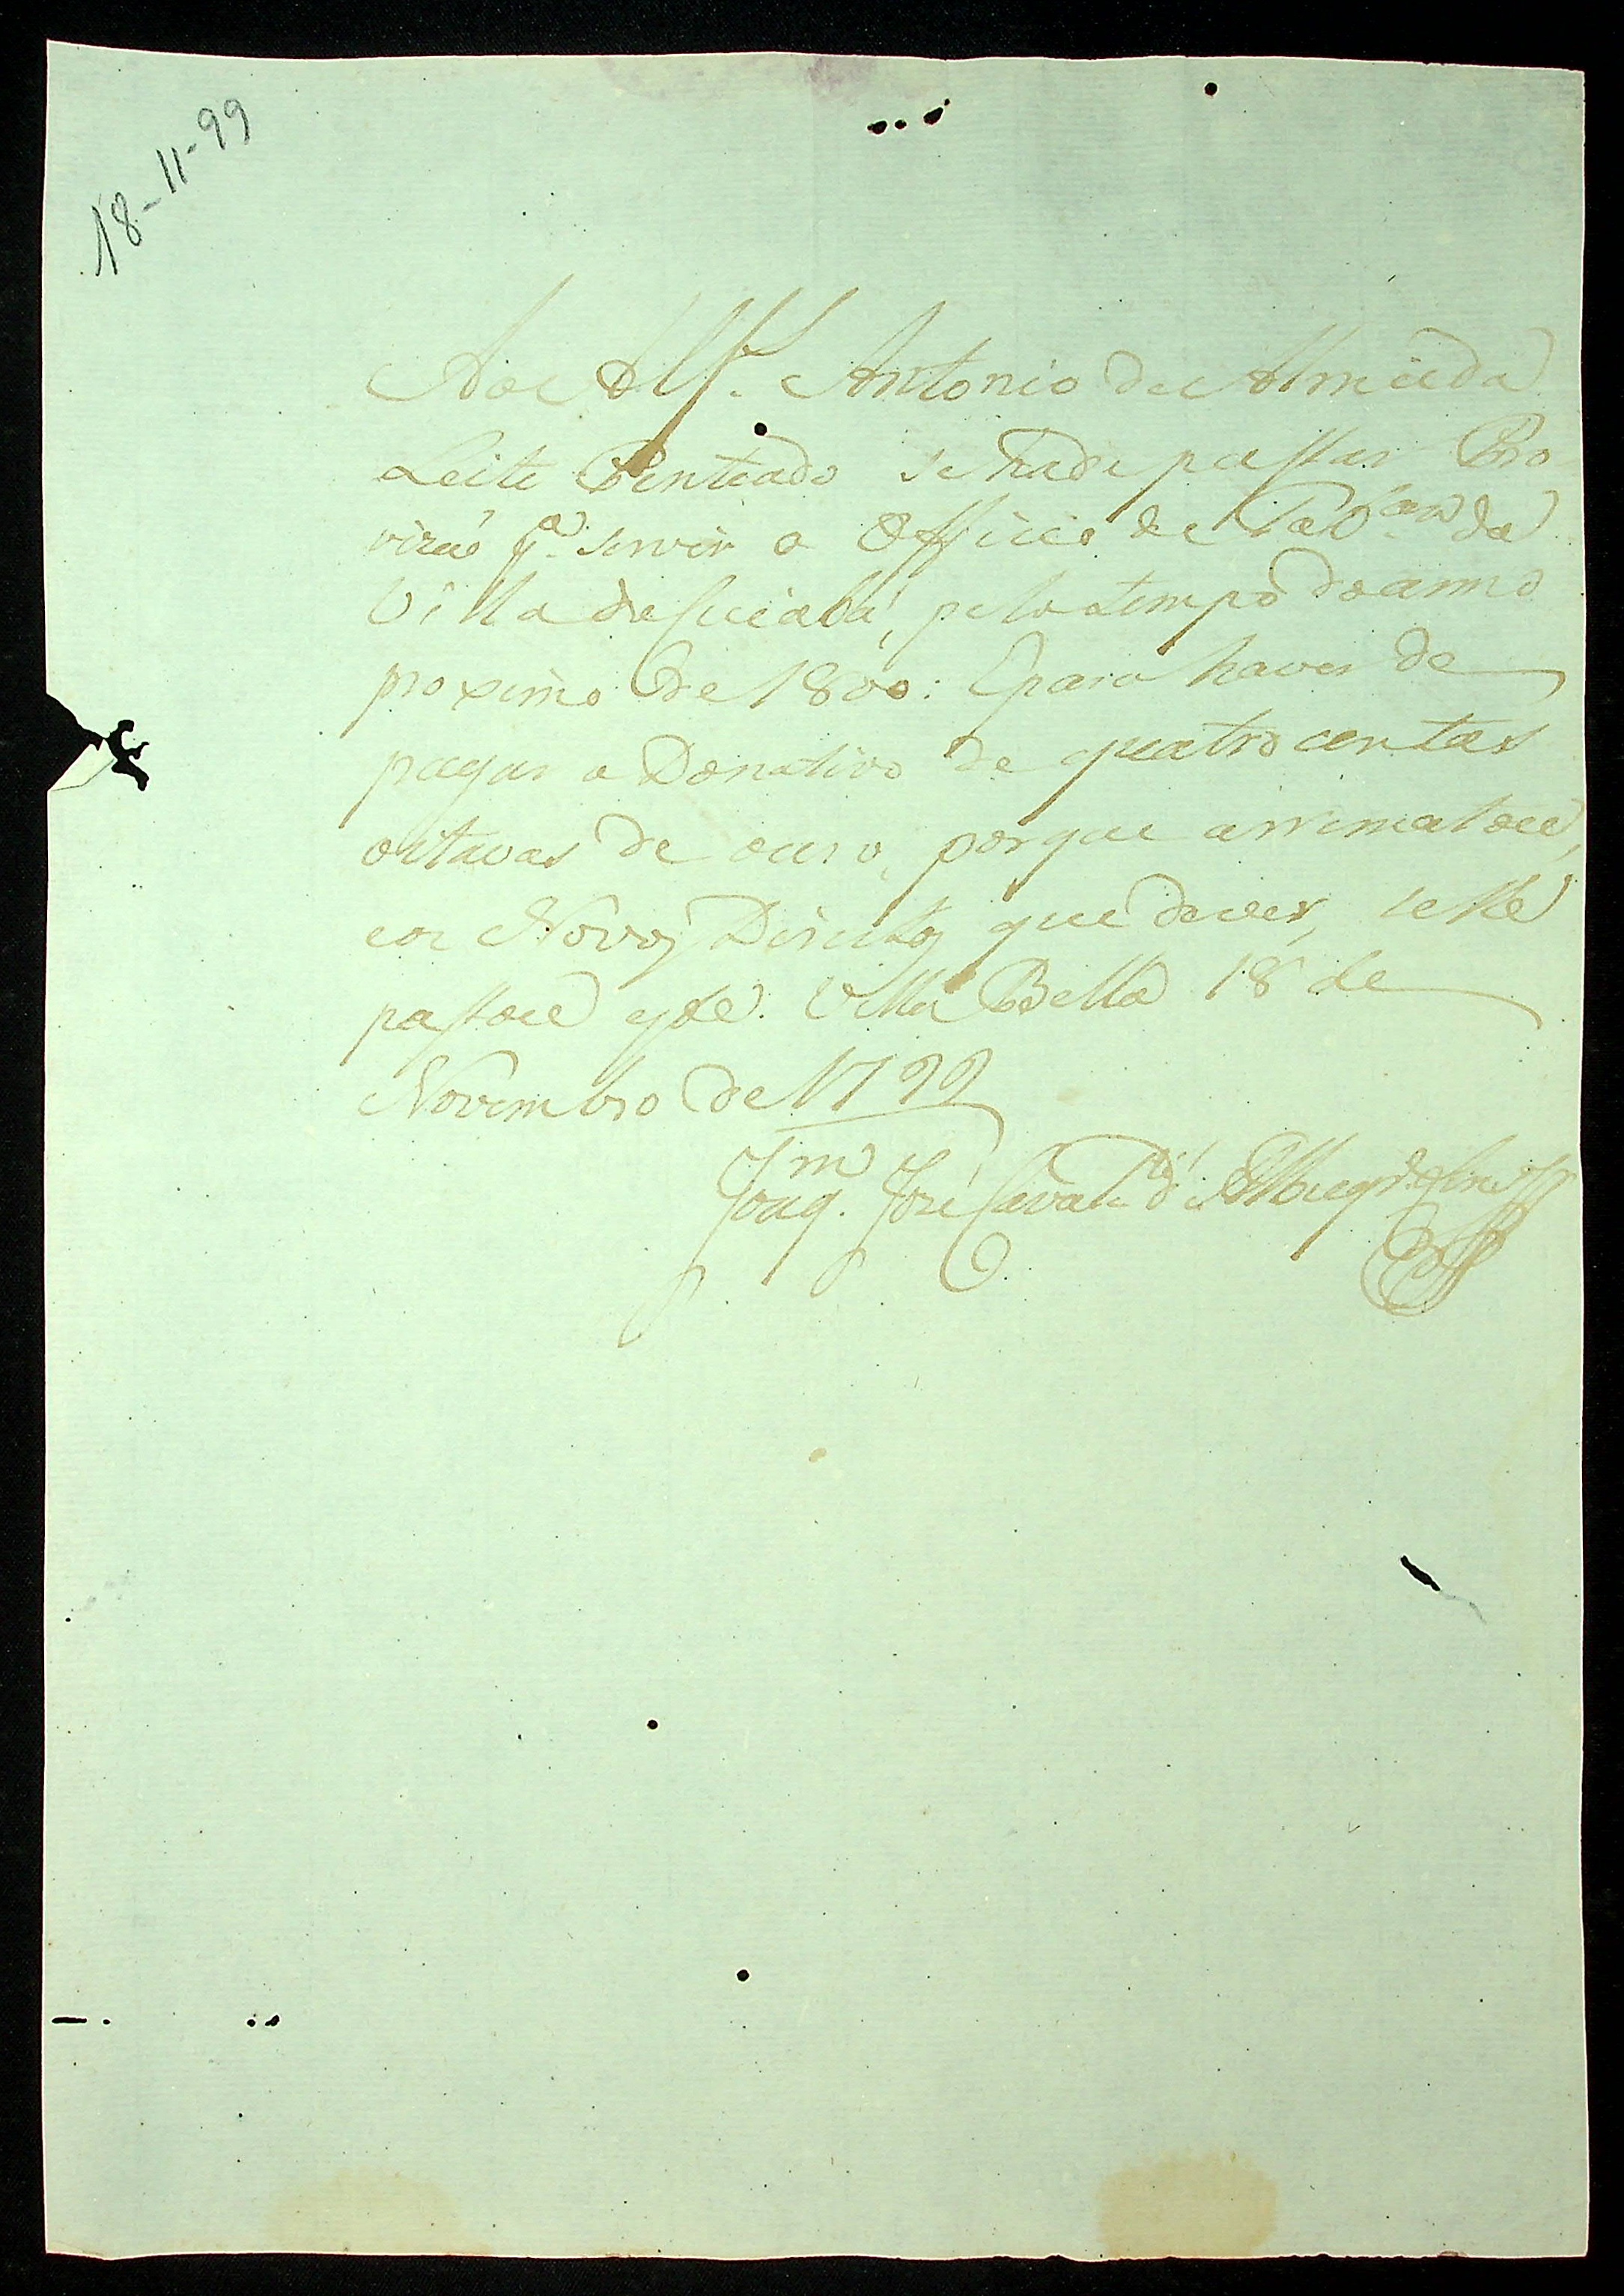 18-11-99
Ao Alf.s Antonio de Almeida
Leite Penteado se hade passar Pro
vizaõ p.a servir o Officio de Tab.am da
Villa do Cuiabá, pelo tempo do anno
proximo de 1800: E para haver de
pagar o Donativo de quatro centas
oitavas de ouro, porque arrematou,
e os Novos Direitos que dever, se lhe
passou este. Villa Bella 18 de
Novembro de 1799
Joaq.m José Cavalc.te d' Albuq.e